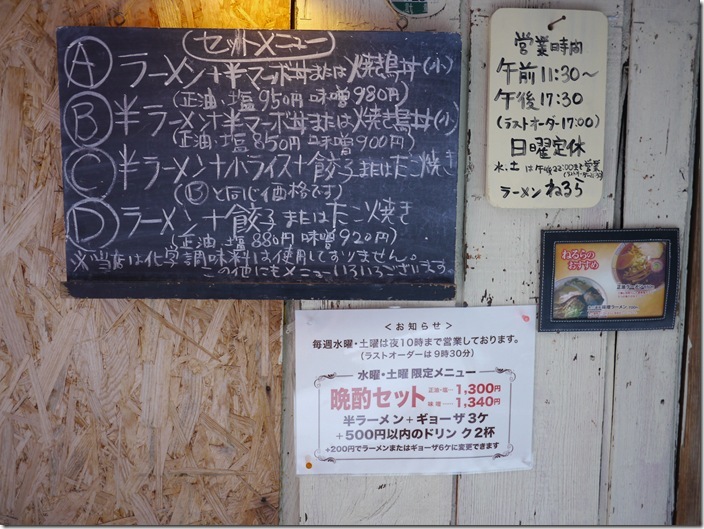 セットメニュー
A ラーメン+半マーボ丼または焼き鳥丼(小)
(正油・塩 950円 味噌 980円)
B 半ラーメン+半マーボ丼または焼き鳥丼(小)
(正油・塩 850円 味噌 900円)
C 半ラーメン+小ライス+餃子またはたこ焼き
(Bと同じ価格です)
D ラーメン+餃子またはたこ焼き
(正油・塩 880円 味噌 920円)
※当店は化学調味料は使用しておりません。
この他にもメニューいろいろございます。
営業時間
午前11:30〜
午後17:30
(ラストオーダー17:00)
日曜定休
水、土は午後22:00まで営業
ラーメン ねるら
ねるらの
おすすめ
<お知らせ>
毎週水曜・土曜は夜10時まで営業しております。
(ラストオーダーは9時30分)
水曜・土曜 限定メニュー
晩酌セット 正油・塩…1,300円
味噌……1,340円
半ラーメン+ギョーザ3ケ
+500円以内のドリンク2杯
+200円でラーメンまたはギョーザ6ケに変更できます